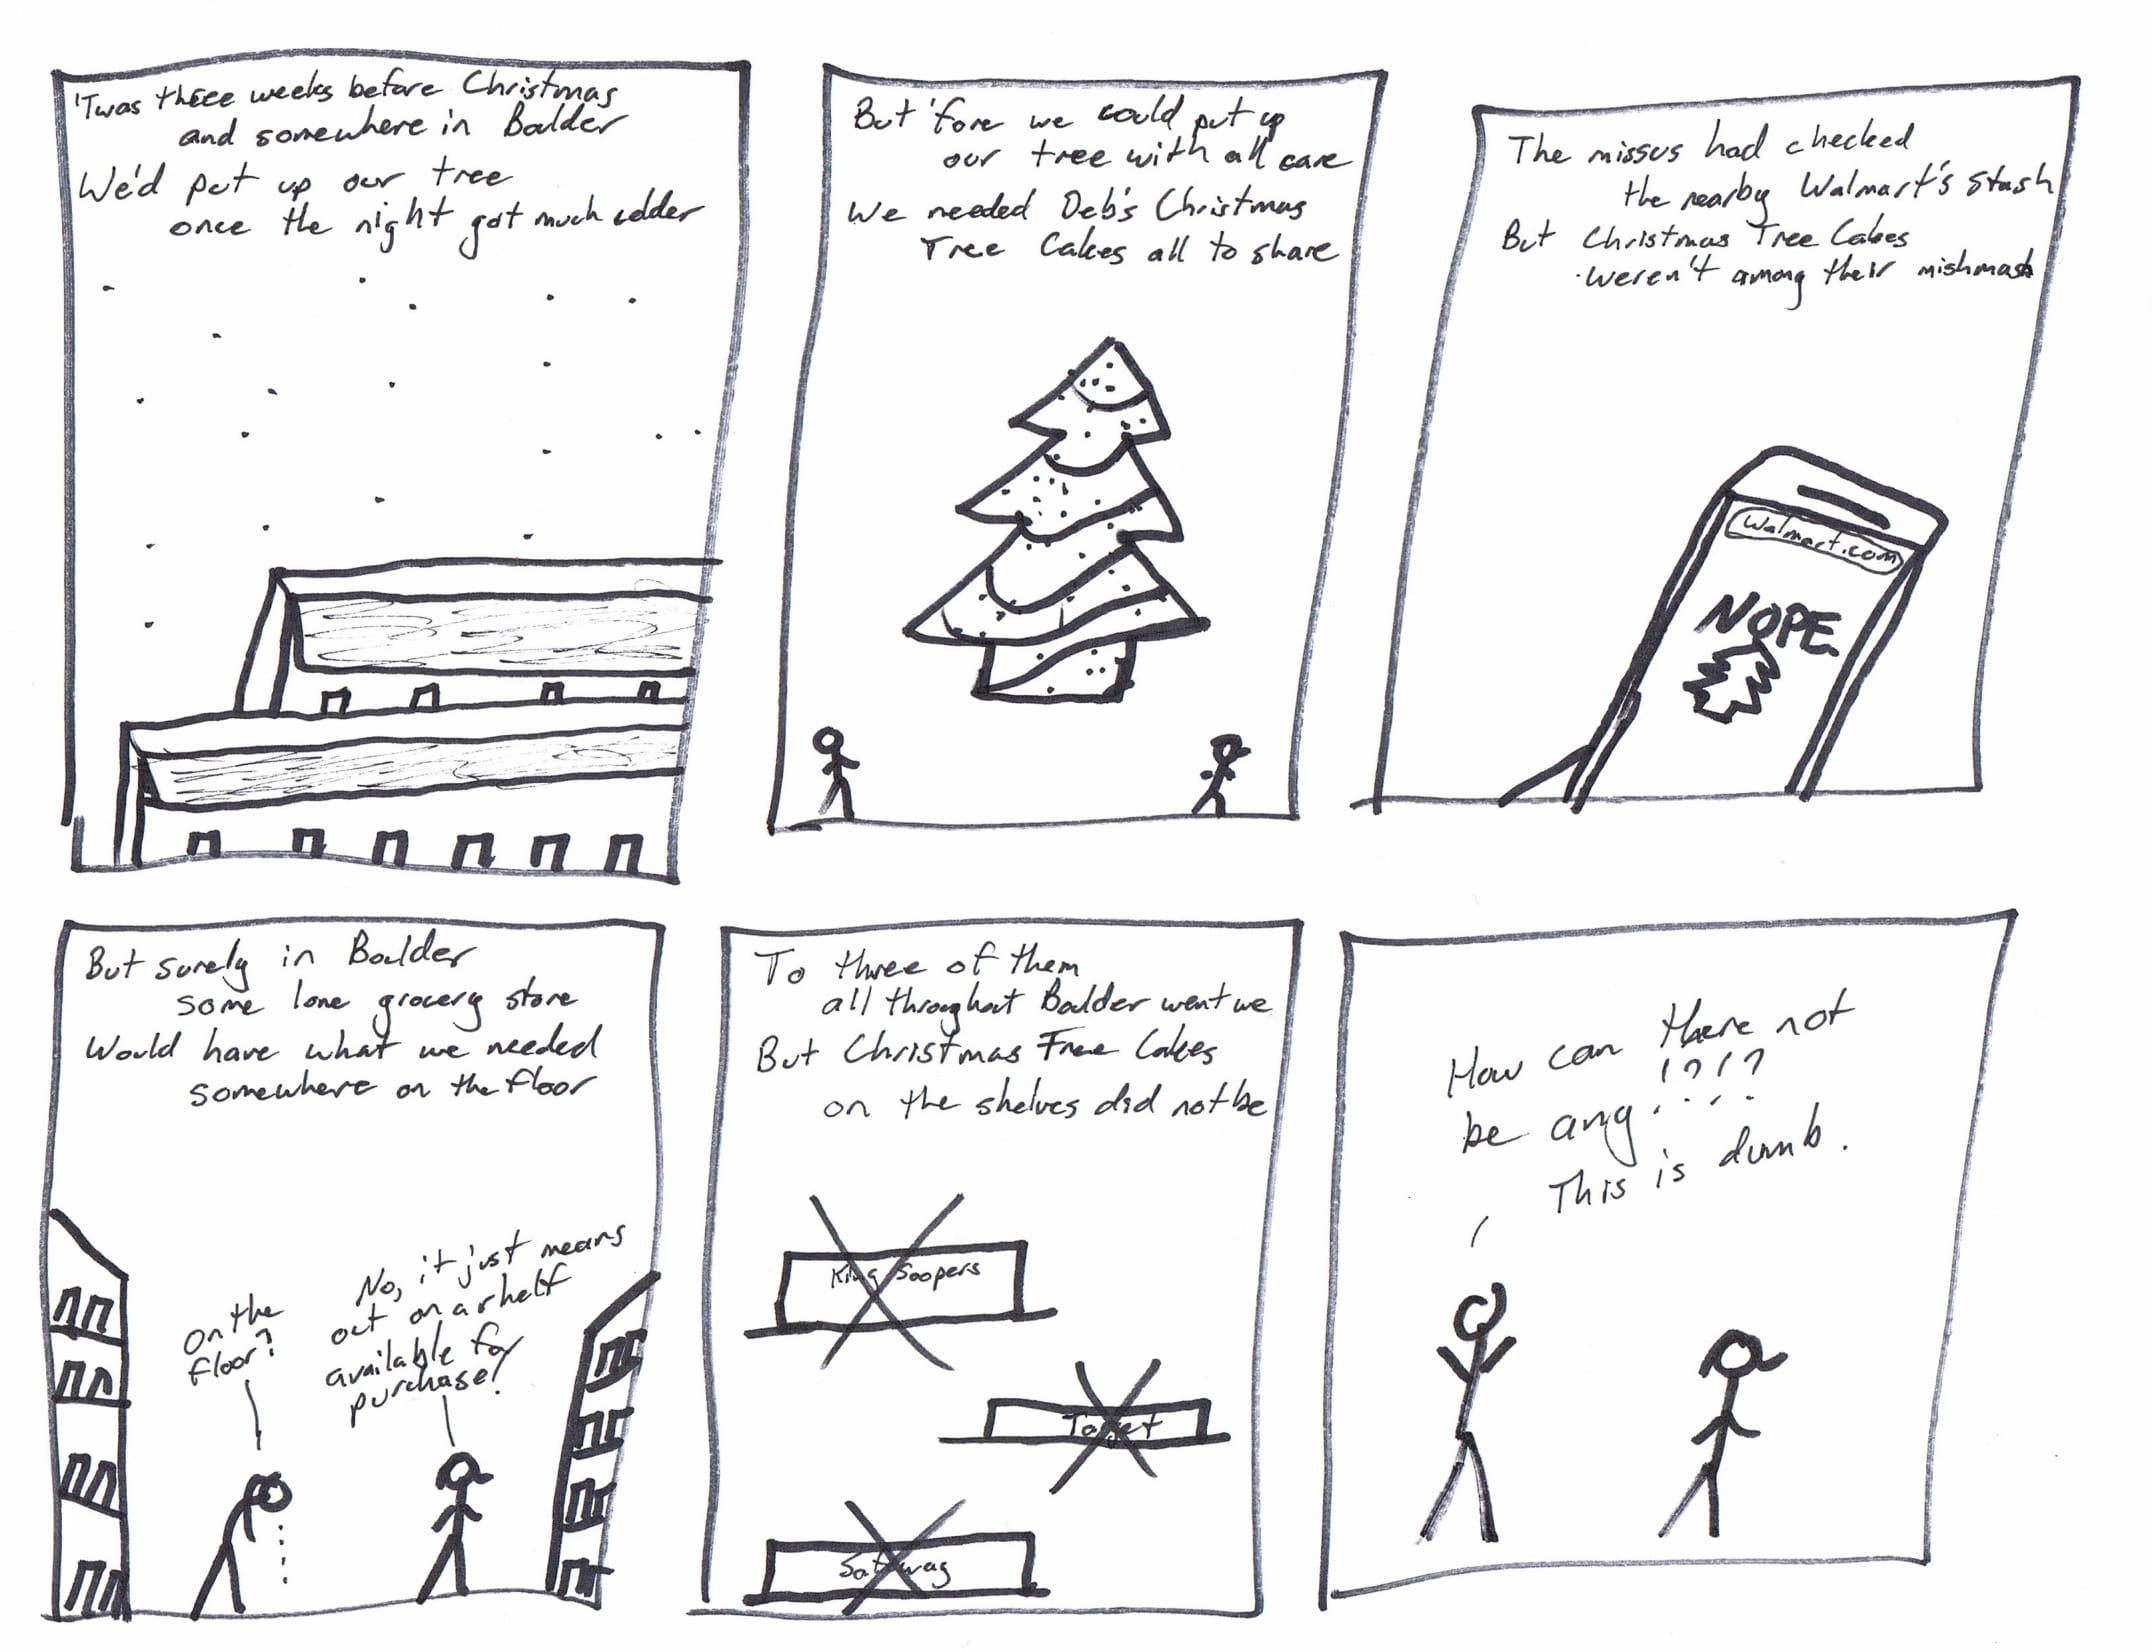 'Twas three weeks before Christmas
and somewhere in Boulder
We'd put up our tree
once the night got much colder
But 'fore we could put up
our tree with all care
We needed Deb's Christmas
Tree Cakes all to share
The missus had checked
the nearby Walmart's stash
But Christmas Tree Cakes
weren't among their mishmash
Walmart.com
NOPE.
But surely in Boulder
some lone grocery store
Would have what we needed
somewhere on the floor
On the
floor?
No, it just means
out on a shelf
available for
purchase!
To three of them
all throughout Boulder went we
But Christmas Tree Cakes
on the shelves did not be
King Soopers
Target
Safeway
How can there not
be any!?!?
This is dumb.